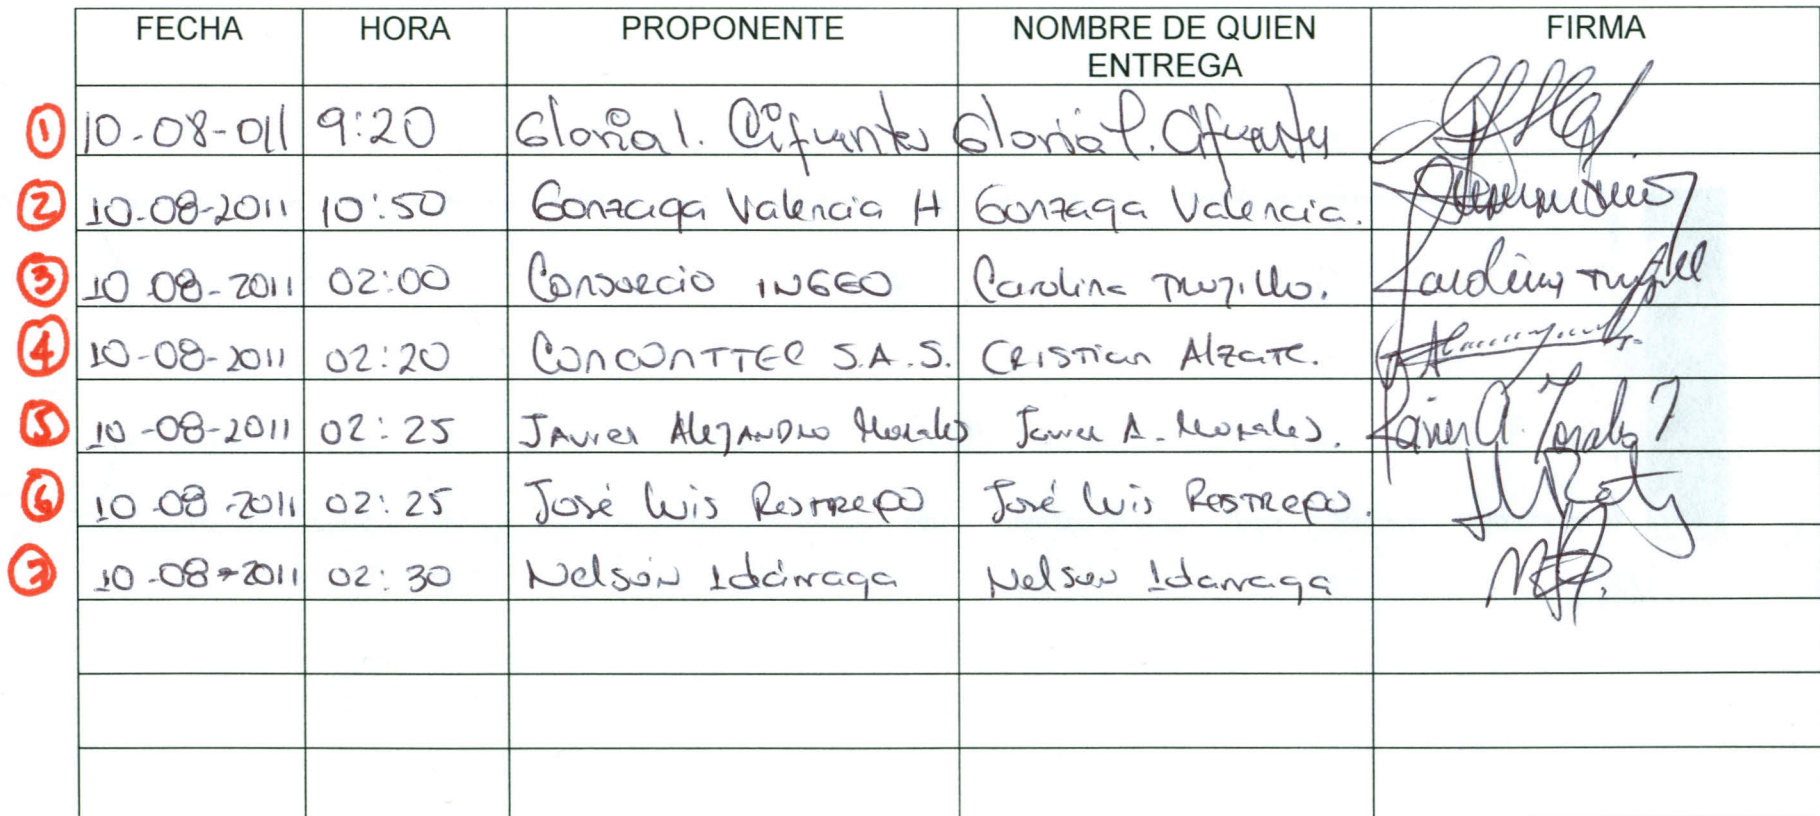 FECHA HORA PROPONENTE NOMBRE DE QUIEN ENTREGA FIRMA
1 10-08-011 9:20 Gloria I. Cifuentes Gloria I. Cifuentes
2 10-08-2011 10:50 Gonzaga Valencia H Gonzaga Valencia.
3 10-08-2011 02:00 Consorcio INGEO Carolina Trujillo. Carolina Trujillo
4 10-08-2011 02:20 CONCONTTEC S.A.S. Cristian Alzate.
5 10-08-2011 02:25 Javier Alejandro Morales Javier A. Morales. Javier A. Morales
6 10-08-2011 02:25 José Luis Restrepo José Luis Restrepo.
7 10-08-2011 02:30 Nelson Idárraga Nelson Idarraga